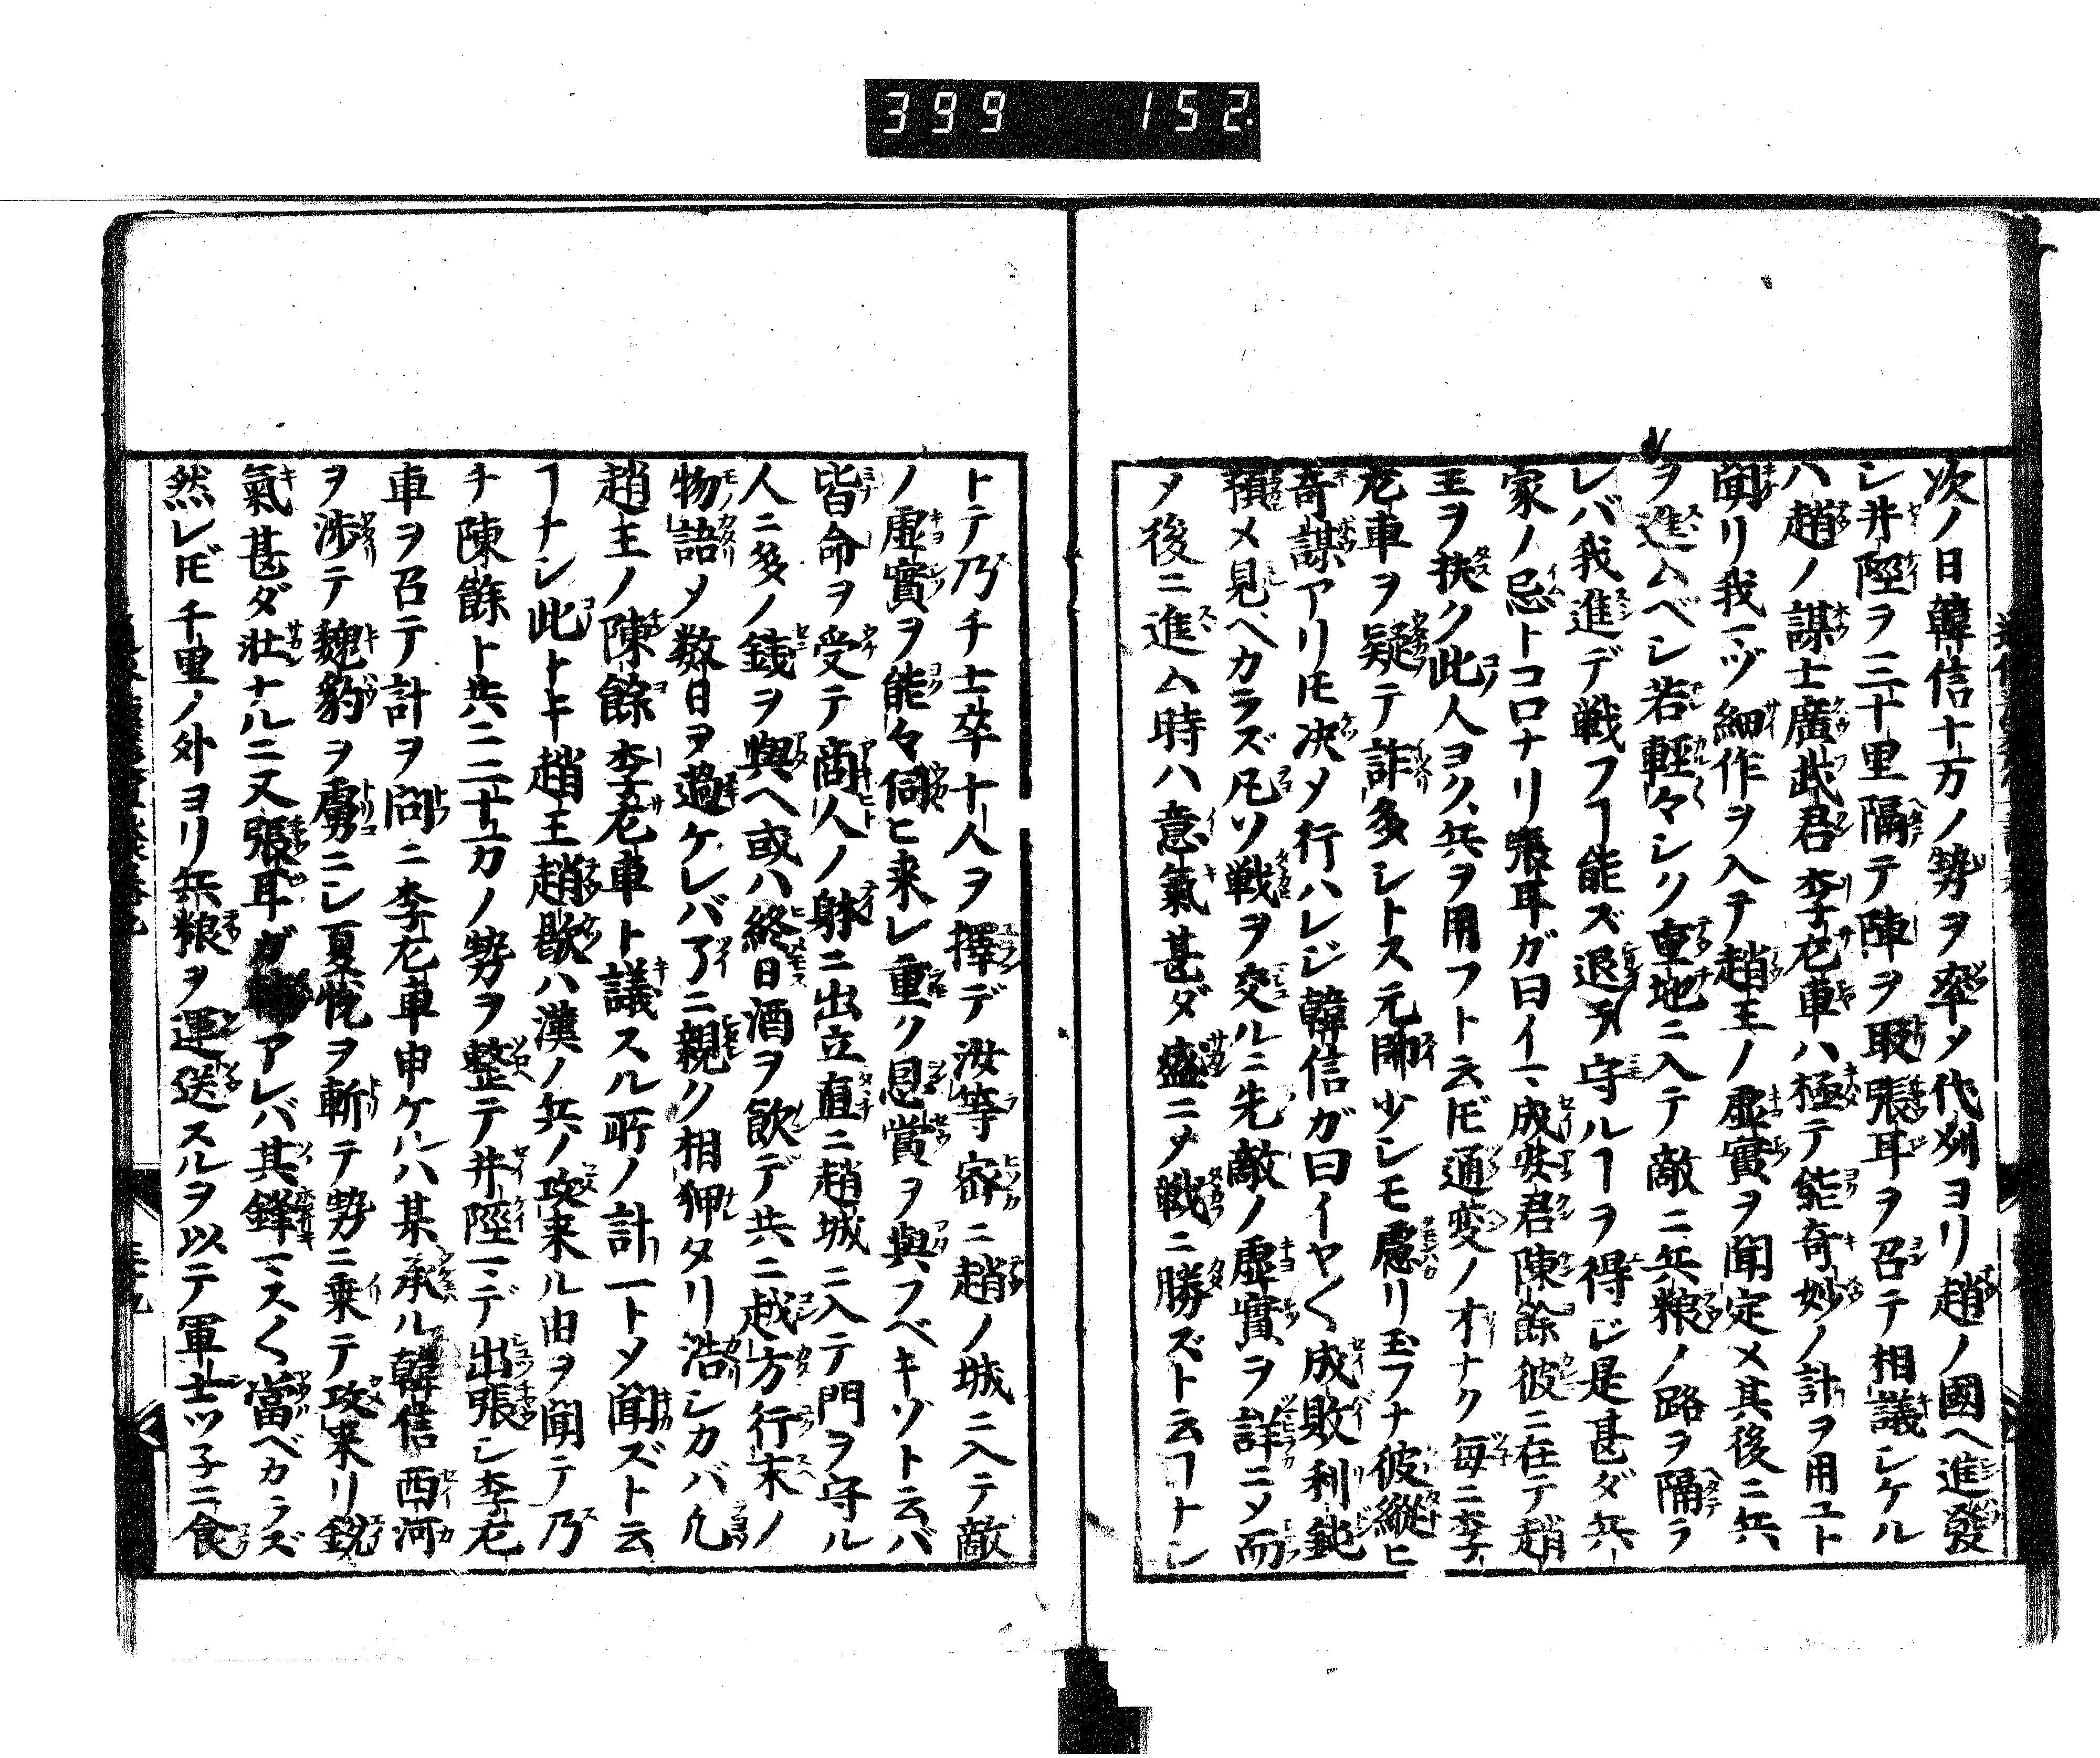 399 152.
次ノ日韓信十万ノ勢ヲ率メ代州ヨリ趙ノ國ヘ進發
シ井陘ヲ三十里隔テ陣ヲ取張耳ヲ召テ相議シケル
ハ趙ノ謀士廣武君李左車ハ極テ能奇妙ノ計ヲ用ユト
聞リ我一ヅ細作ヲ入テ趙王ノ虚實ヲ聞定メ其後ニ兵
ヲ進ムベシ若輕々シク重地ニ入テ敵ニ兵粮ノ路ヲ隔ラ
レバ我進デ戦フヿ能ズ退テ守ルヿヲ得ジ是甚ダ兵
家ノ忌トコロナリ張耳ガ曰イマ成安君陳餘彼ニ在テ趙
王ヲ扶ク此人ヨク兵ヲ用フト云ドモ通変ノオナク毎ニ李
左車ヲ疑テ詐多シトス元帥少シモ慮リ玉フナ彼縦ヒ
奇謀アリトモ决メ行ハレジ韓信ガ曰イヤ〱成敗利鈍
預メ見ベカラズ凡ソ戦ヲ交ルニ先敵ノ虚實ヲ詳ニメ而
メ後ニ進ム時ハ意氣甚ダ盛ニメ戦ニ勝ズト云ヿナシ
トテ乃チ士卒十人ヲ擇デ汝等密ニ趙ノ城ニ入テ敵
ノ虚實ヲ能々伺ヒ来レ重ク恩賞ヲ與フベキゾト云バ
皆命ヲ受テ商人ノ躰ニ出立直ニ趙城ニ入テ門ヲ守ル
人ニ多ノ銭ヲ與ヘ或ハ終日酒ヲ飲デ共ニ越方行末ノ
物語メ数日ヲ過ケレバ了ニ親ク相狎タリ浩シカバ凢
趙王ノ陳餘李左車ト議スル所ノ計一トメ聞ズト云
ヿナシ此トキ趙王趙歇ハ漢ノ兵ノ攻来ル由ヲ聞テ乃
チ陳餘ト共ニ二十万ノ勢ヲ整テ井陘マデ出張シ李左
車ヲ召テ計ヲ問ニ李左車申ケルハ某承ル韓信西河
ヲ渉テ魏豹ヲ虜ニシ夏悦ヲ斬テ勢ニ乗テ攻来リ鋭
氣甚ダ壮ナルニ又張耳ガアレバ其鋒マス〱當ベカラズ
然レドモ千里ノ外ヨリ兵粮ヲ運送スルヲ以テ軍士ツ子ニ食